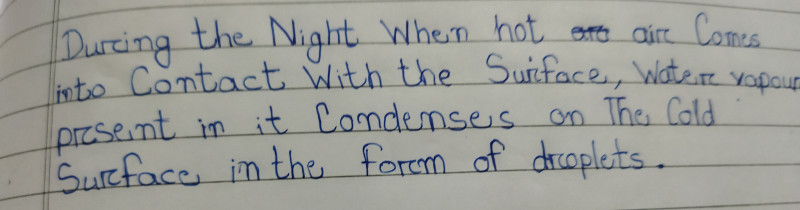 During the Night When hot air Comes
into Contact With the Surface, Water vapour
present in it Condenses on The Cold
Surface in the form of droplets.